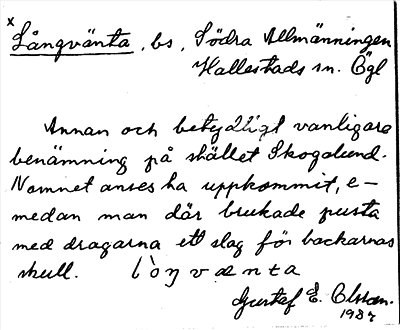 x
Långvänta, bs, Södra Allmänningen
Hallestads sn. Ögl
Annan och betydligt vanligare
benämning på stället Skogalund.
Namnet anses ha uppkommit, e-
medan man där brukade pusta
med dragarna ett slag för backarnas
skull. lòŋvænta
Gustaf E. Olsson.